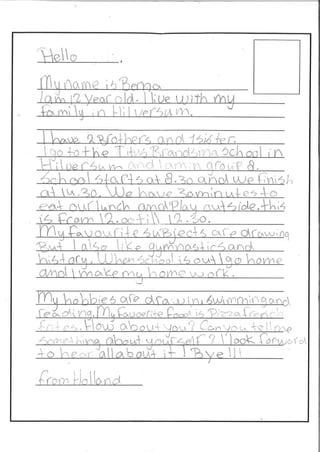 Hello .
My name is Bema
I am 12 year old. I live with my
family in Hilversum.
I have 2 Brothers and 1 sister.
I go to the Titus Brandsma School in
Hilversum and I am in group 8.
School starts at 8.30 and we finish
at 14.30. We have 30 minutes to
eat our lunch and Play outside. this
is from 12.00 till 12.30.
My favourite subjects are drawing
But I also like gymnastics and
history. When school is out I go home
and I make my home work.
My hobbies are drawin, swimming and
reading. My favourite food is Pizza french
fries. How about you? Can you tell me
something about yourself? I look forward
to hear all about it! Bye!!!
from Holland